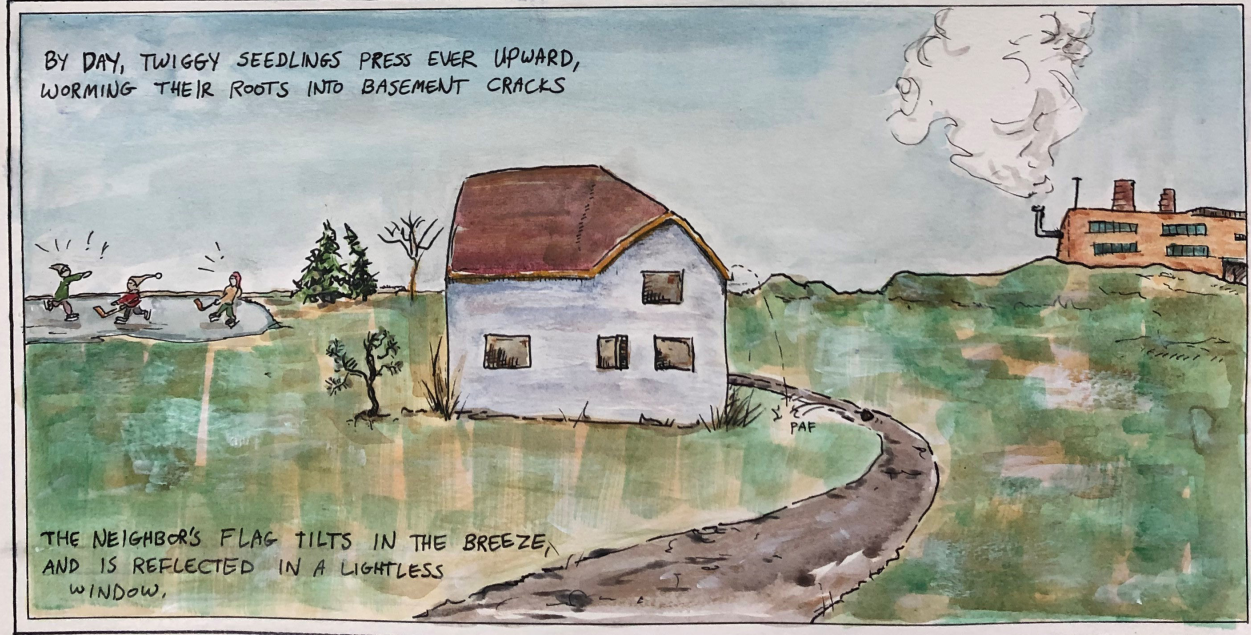 BY DAY, TWIGGY SEEDLINGS PRESS EVER UPWARD,
WORMING THEIR ROOTS INTO BASEMENT CRACKS
PAF
THE NEIGHBOR'S FLAG TILTS IN THE BREEZE,
AND IS REFLECTED IN A LIGHTLESS
WINDOW.